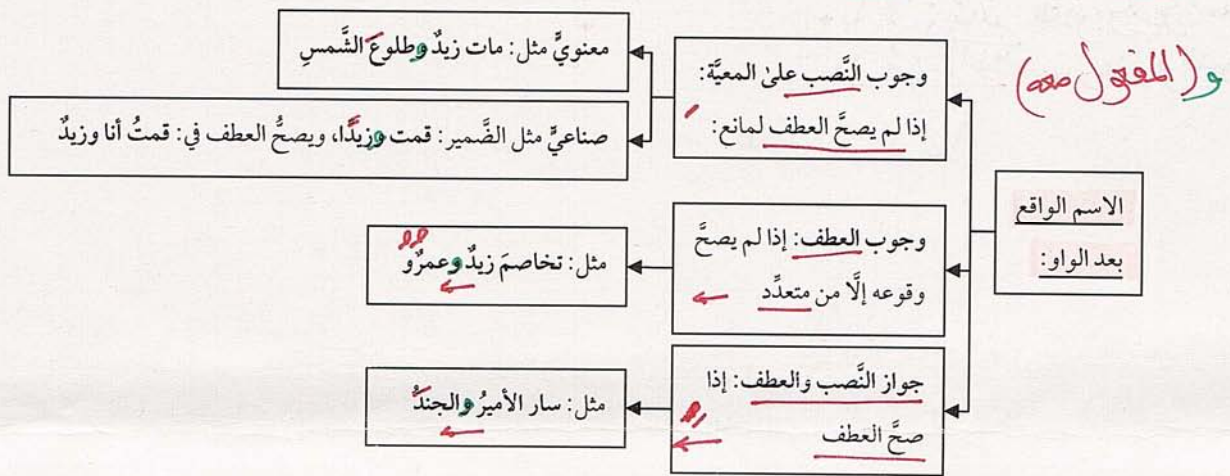 و (المفعول معه)
الاسم الواقع
بعد الواو:
وجوب النَّصب على المعيَّة:
إذا لم يصحَّ العطف لمانع:
معنويٌّ مثل: مات زيدٌ وطلوعَ الشَّمسِ
صناعيٌّ مثل الضَّمير: قمت وزيدًا، ويصحُّ العطف في: قمتُ أنا وزيدٌ
وجوب العطف: إذا لم يصحَّ
وقوعه إلَّا من متعدِّد
مثل: تخاصمَ زيدٌ وعمرٌو
جواز النَّصب والعطف: إذا
صحَّ العطف
مثل: سار الأميرُ والجندَُ